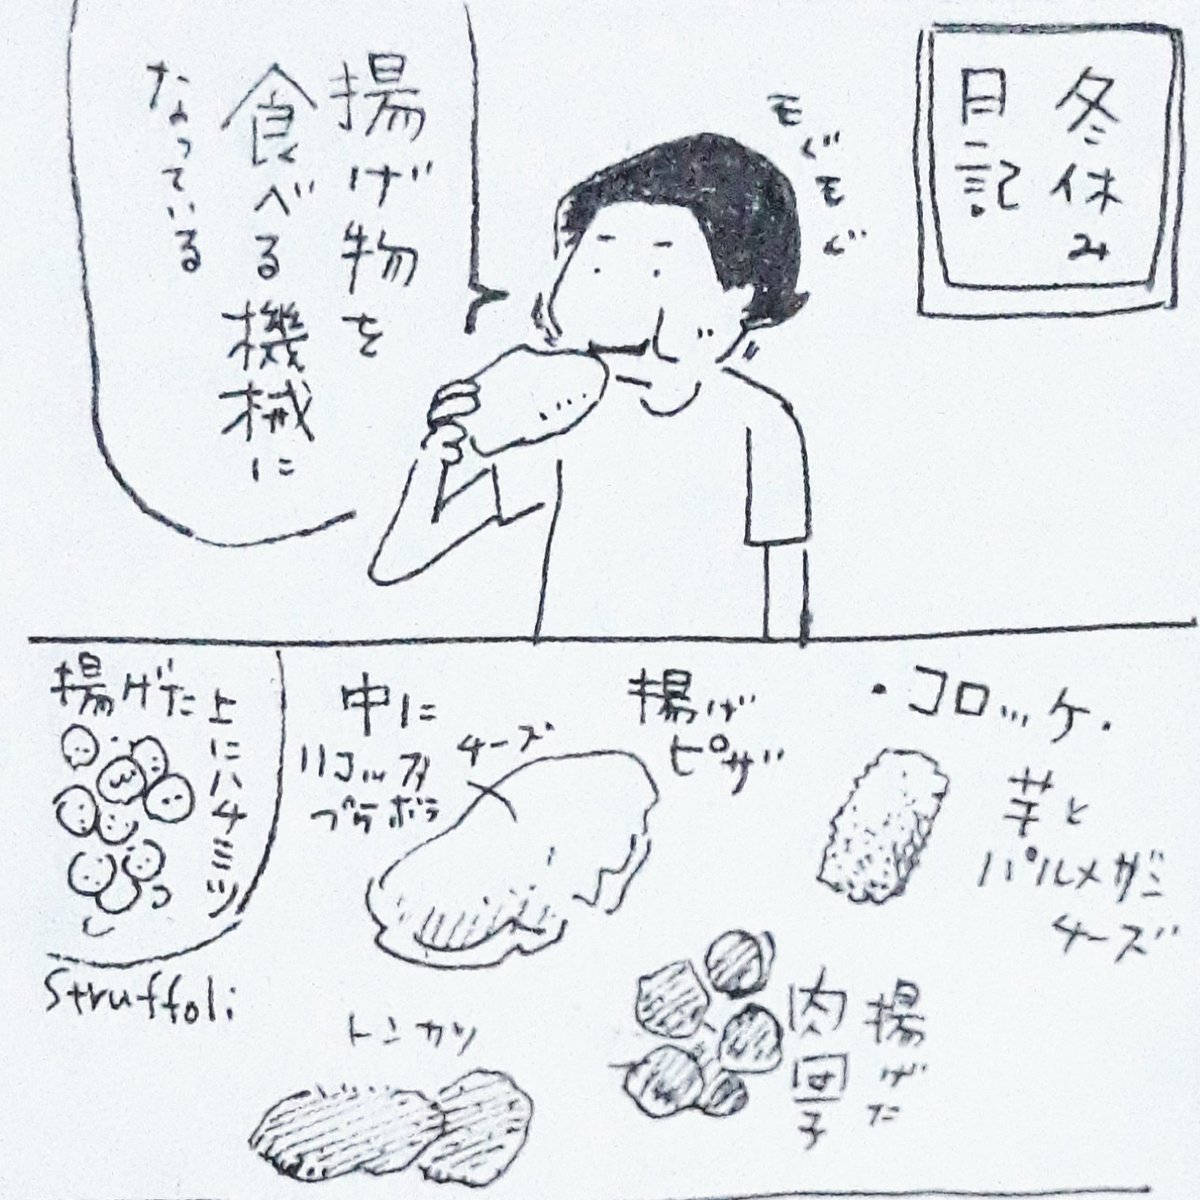 冬休み
日記
モグモグ
揚げ物を
食べる機械に
なっている
・コロッケ・
芋と
パルメザン
チーズ
揚げ
ピザ
チーズ
中に
リコッタ
プラボラ
揚げた
肉団子
トンカツ
揚げた
上にハチミツ
Struffoli